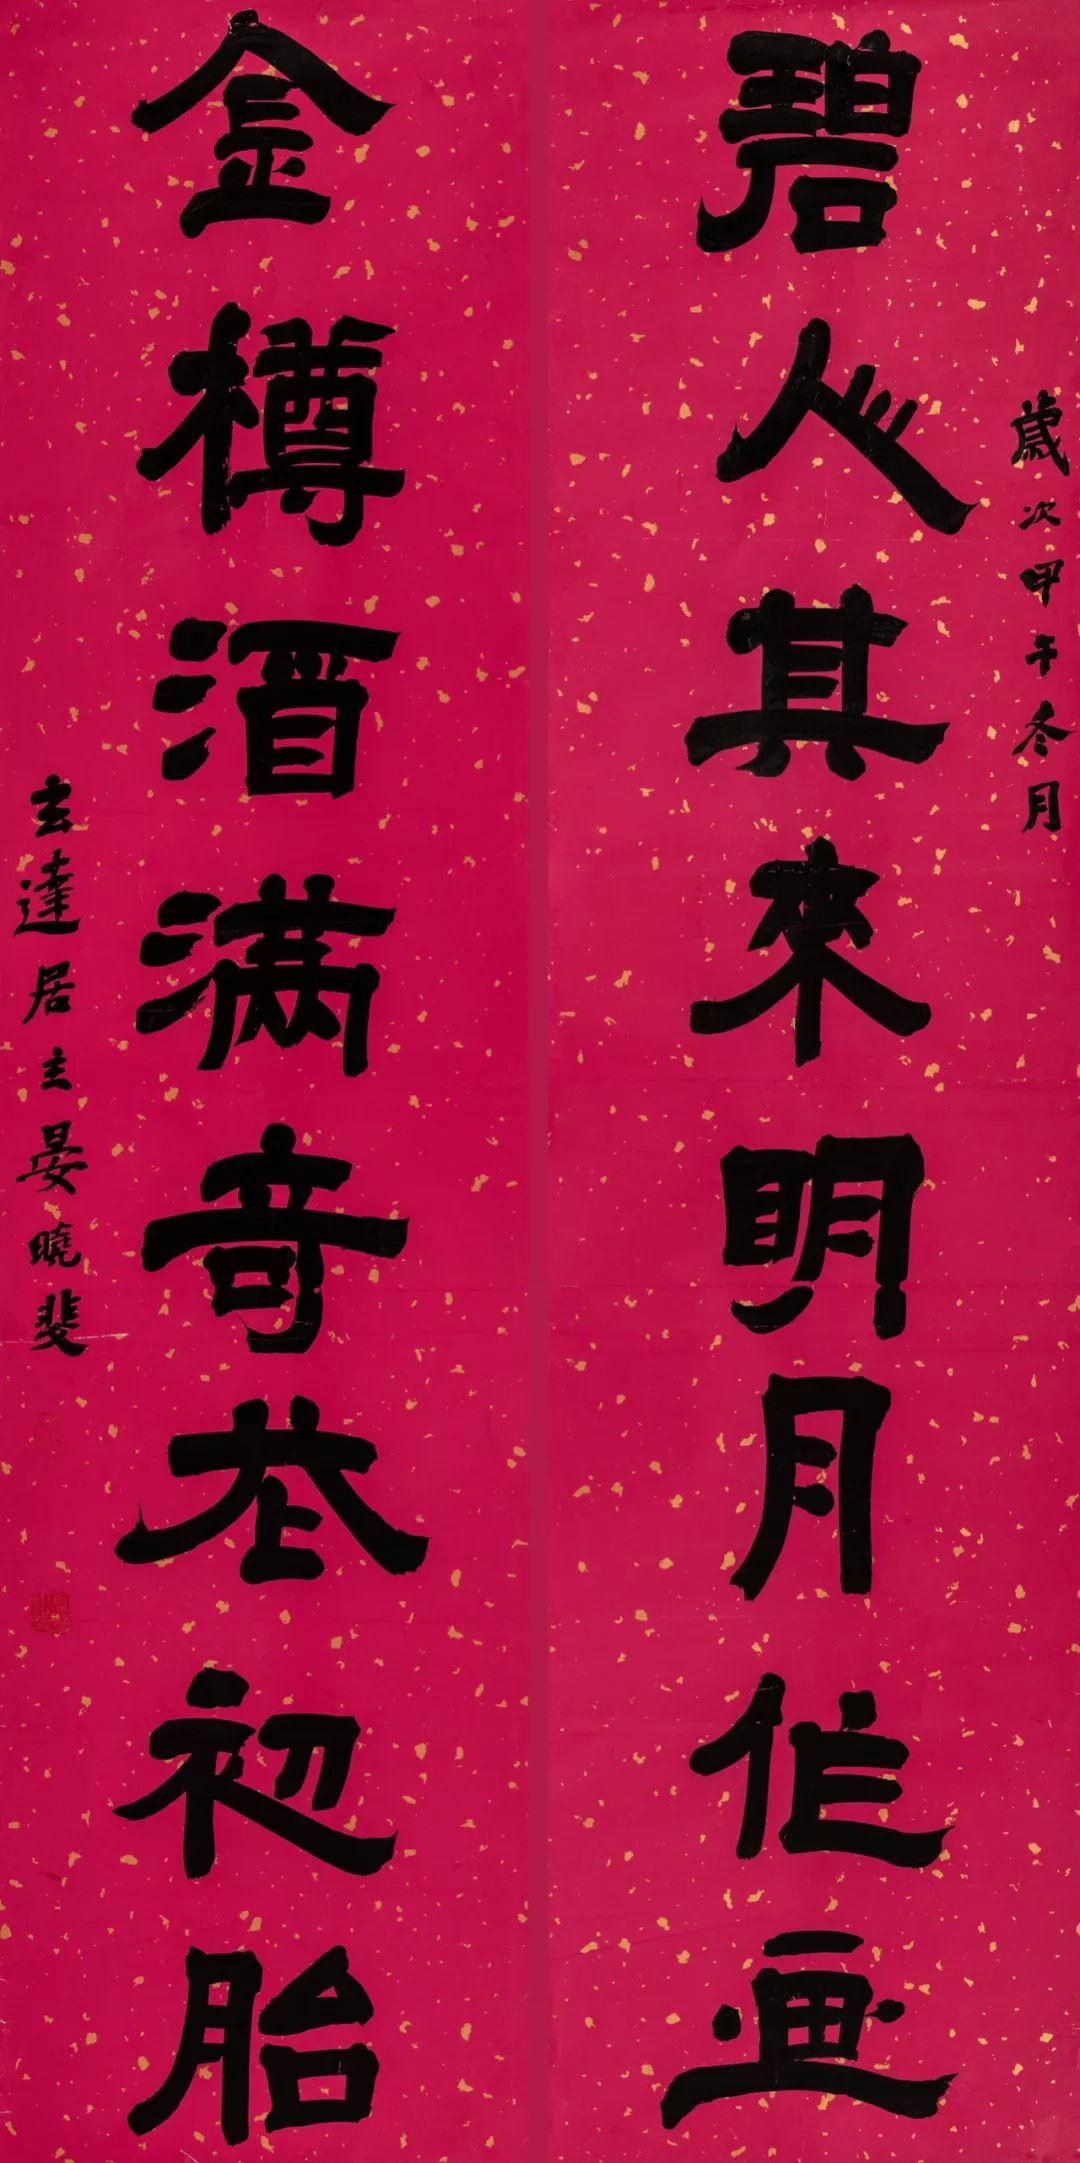 歲次甲午冬月
碧人其來明月作画
金樽酒滿奇花初胎
玄達居主晏曉斐